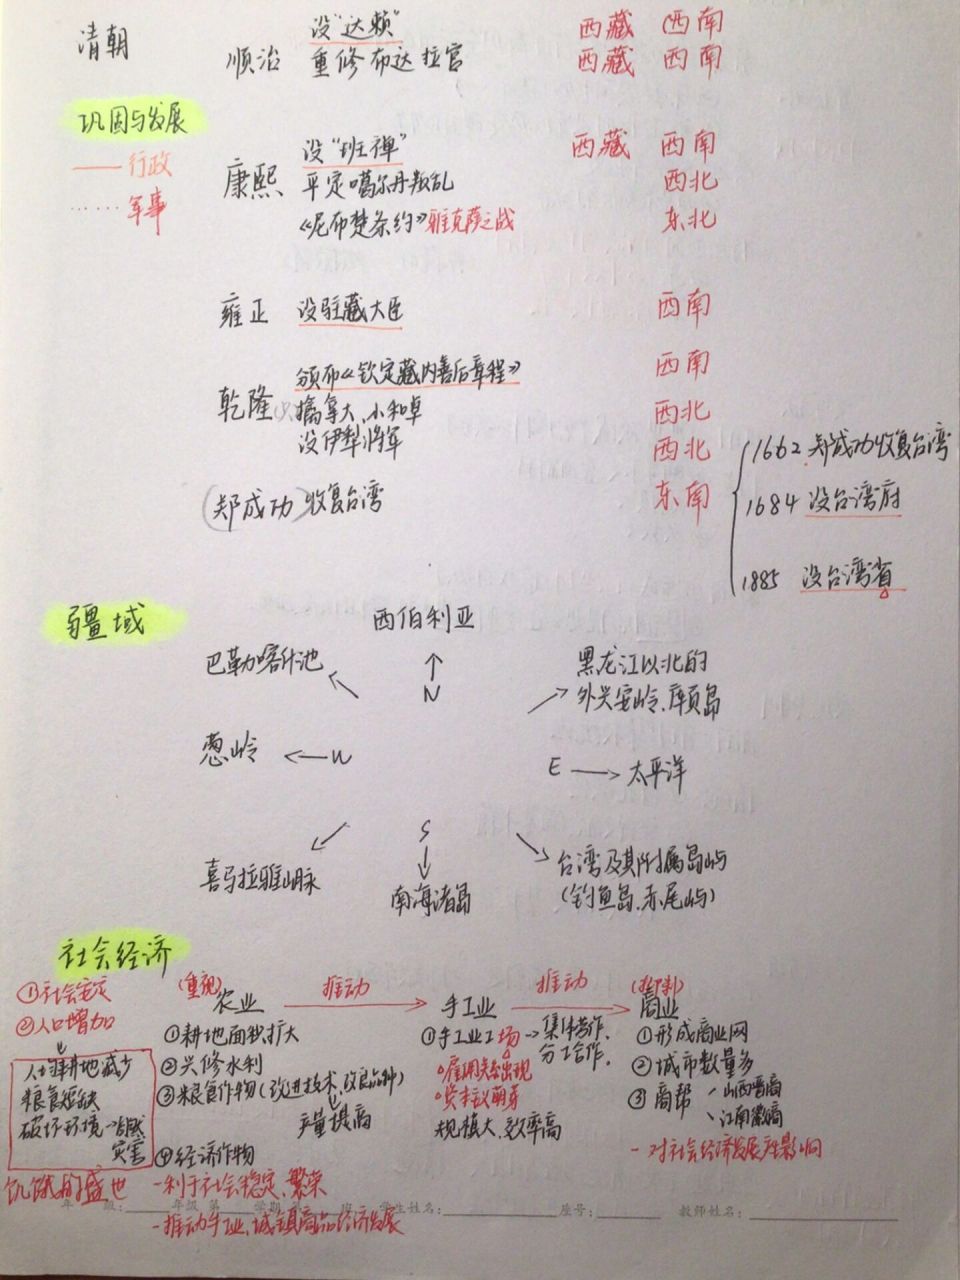 清朝
顺治 设"达赖" 西藏 西南
重修布达拉宫 西藏 西南
巩固与发展
—— 行政
…… 军事
康熙 设"班禅" 西藏 西南
平定噶尔丹叛乱 西北
《尼布楚条约》雅克萨之战 东北
雍正 设驻藏大臣 西南
乾隆 颁布《钦定藏内善后章程》 西南
擒拿大、小和卓 西北
设伊犁将军 西北
(郑成功)收复台湾 东南
1662 郑成功收复台湾
1684 设台湾府
1885 设台湾省
疆域
西伯利亚
N
巴勒喀什池
黑龙江以北的
外兴安岭、库页岛
葱岭 ← W
E → 太平洋
S
喜马拉雅山脉
南海诸岛
台湾及其附属岛屿
(钓鱼岛、赤尾屿)
社会经济
①社会安定
②人口增加
人均耕地减少
粮食短缺
破坏环境→自然
灾害
饥饿的盛世
(重视)
农业 推动 手工业 推动 商业
(抑制)
①耕地面积扩大
②兴修水利
③粮食作物(改进技术、改良品种)
产量提高
④经济作物
-利于社会稳定、繁荣
-推动手工业、城镇商品经济发展
①手工业工场→集体劳作,
分工合作。
雇佣关系出现
资本主义萌芽
规模大、效率高
①形成商业网
②城市数量多
③商帮 山西晋商
江南徽商
-对社会经济发展产生影响
年 级:____年级 第____学期 第____班 学生姓名:____ 座号:____ 教师姓名:____